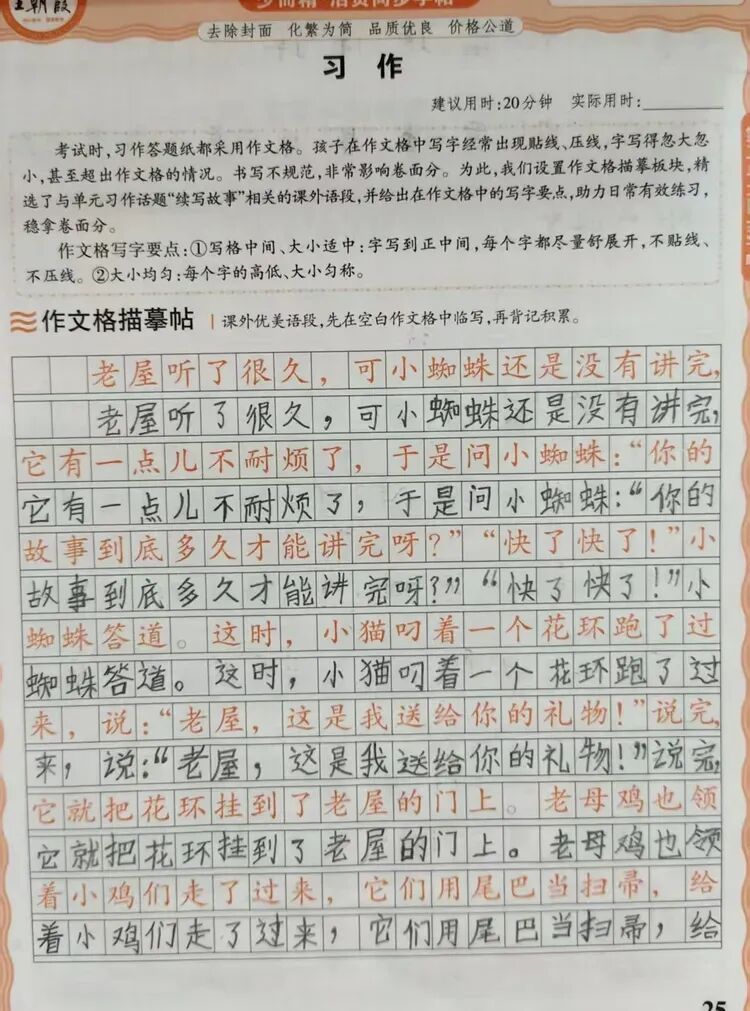 王朝霞
少而精 活页同步字帖
去除封面 化繁为简 品质优良 价格公道
习 作
建议用时:20分钟 实际用时:
考试时,习作答题纸都采用作文格。孩子在作文格中写字经常出现贴线、压线,字写得忽大忽
小,甚至超出作文格的情况。书写不规范,非常影响卷面分。为此,我们设置作文格描摹板块,精
选了与单元习作话题“续写故事”相关的课外语段,并给出在作文格中的写字要点,助力日常有效练习,
稳拿卷面分。
作文格写字要点:①写格中间、大小适中:字写到正中间,每个字都尽量舒展开,不贴线、
不压线。②大小均匀:每个字的高低、大小匀称。
作文格描摹帖 课外优美语段,先在空白作文格中临写,再背记积累。
老屋听了很久,可小蜘蛛还是没有讲完,
老屋听了很久,可小蜘蛛还是没有讲完,
它有一点儿不耐烦了,于是问小蜘蛛:“你的
它有一点儿不耐烦了,于是问小蜘蛛:“你的
故事到底多久才能讲完呀?”“快了快了!”小
故事到底多久才能讲完呀?”“快了快了!”小
蜘蛛答道。这时,小猫叼着一个花环跑了过
蜘蛛答道。这时,小猫叼着一个花环跑了过
来,说:“老屋,这是我送给你的礼物!”说完,
来,说:“老屋,这是我送给你的礼物!”说完,
它就把花环挂到了老屋的门上。老母鸡也领
它就把花环挂到了老屋的门上。老母鸡也领
着小鸡们走了过来,它们用尾巴当扫帚,给
着小鸡们走了过来,它们用尾巴当扫帚,给
25